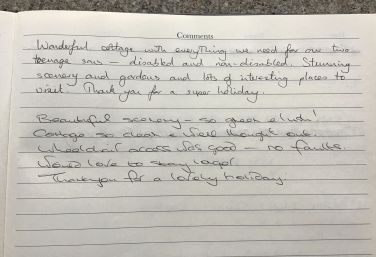 Comments
Wonderful cottage with everything we need for our two
teenage sons – disabled and non-disabled. Stunning
scenery and gardens and lots of interesting places to
visit. Thank you for a super holiday.
Beautiful scenery – so green & lush!
Cottage so clean & well thought out.
Wheelchair access was good – no faults.
Would love to stay
Thankyou for a lovely holiday.